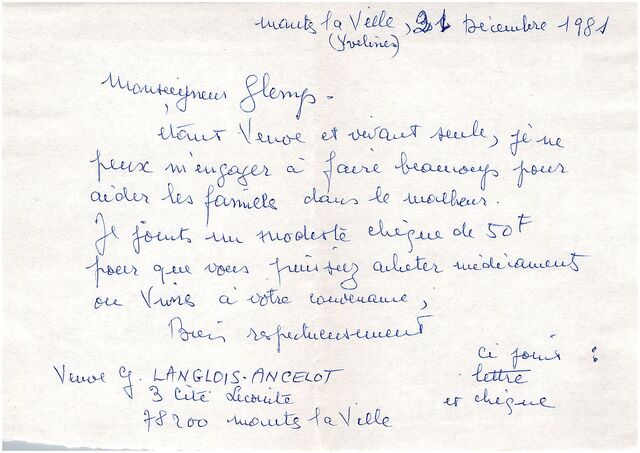 mants la Ville, 21 Décembre 1981
(Yvelines)
Monseigneur Glemp -
étant Veuve et vivant seule, je ne
peux m'engager à faire beaucoup pour
aider les familles dans le malheur.
Je joints un modeste chèque de 50F
pour que vous puissiez acheter médicament
ou Vivres à votre convenance,
Bien respectueusement
ci joint :
lettre
et chèque
Veuve G. LANGLOIS-ANCELOT
3 Cité Lecointe
78200 mants la Ville